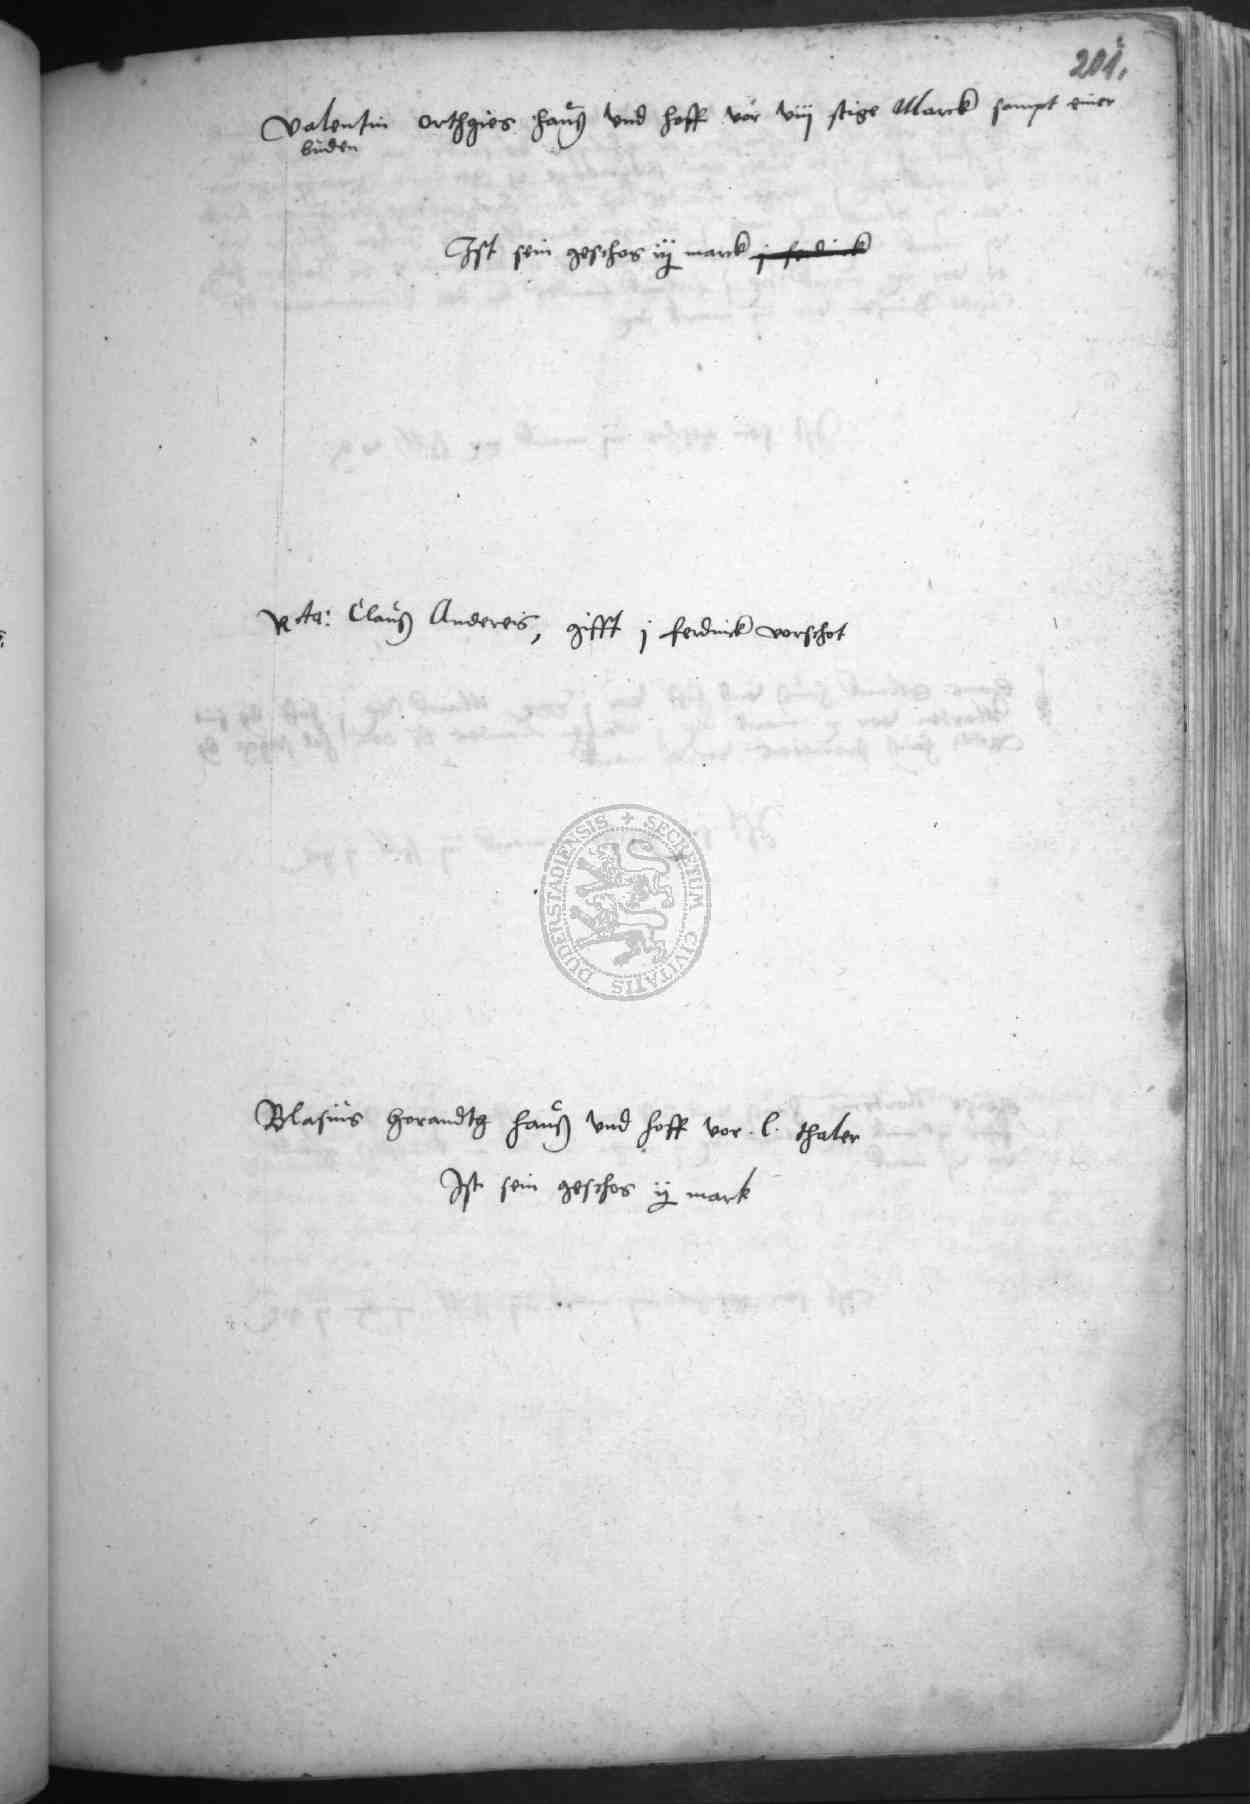 201.
Valentin Orthgies hauß vnd hoff vor viij stige Marck sampt einer
buden
Ist sein geschos iij marck j ferdinck
Rta: Clauß Andereis, gifft j ferdinck vorschot
DUDERSTADIENSIS + SECRETUM CIVITATIS
Blasius Gerandtz hauß vnd hoff vor l thaler
Ist sein geschos ij mark